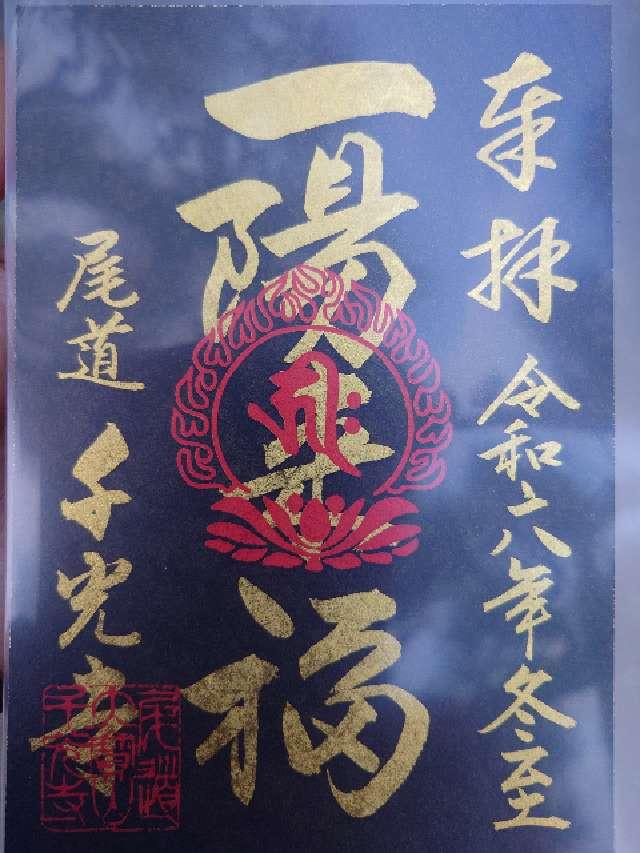 奉拝 令和六年冬至
一陽来福
尾道 千光寺
尾道
大寳山
千光寺